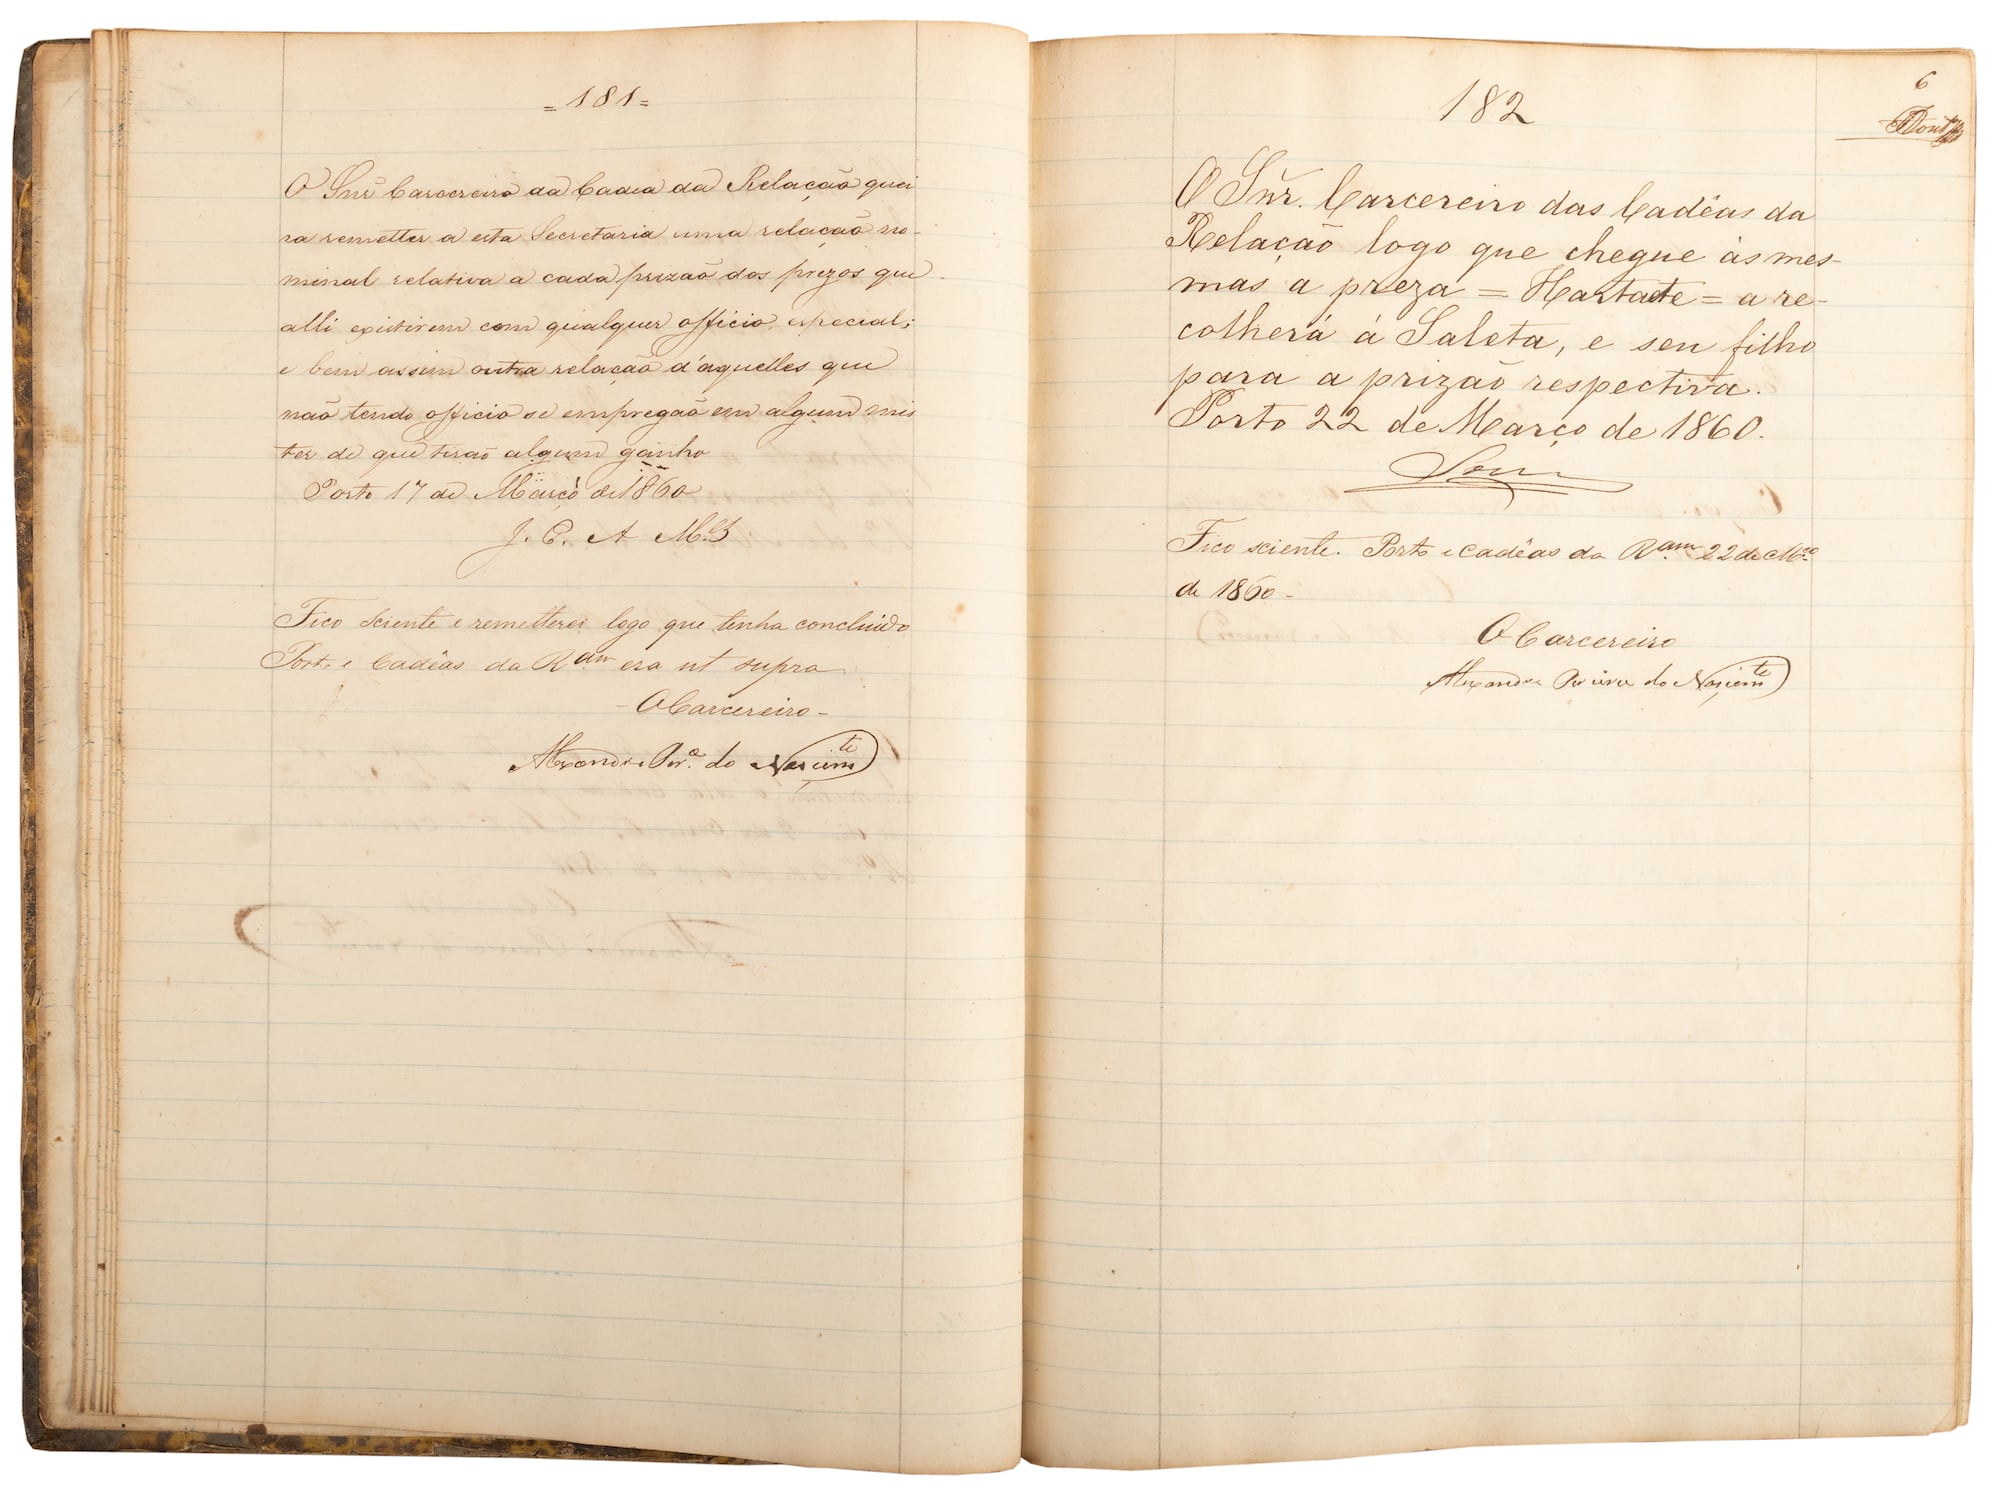 = 181 =
O Snr Carcereiro da Cadea da Relação quei
ra remetter a esta Secretaria uma relação no-
minal relativa a cada prizão dos prezos que
alli existirem com qualquer officio especial;
e bem assim outra relação d'aquelles que
não tendo officio se empregão em algum mis
ter de que tirão algum ganho
Porto 17 de Março de 1860
J. C. A M.es
Fico sciente e remetterei logo que tenha concluido
Porto e Cadêas da R.am era ut supra
- O Carcereiro -
Alexandre Per.a do Nascim.to
6
182
O Snr. Carcereiro das Cadêas da
Relação logo que chegue ás mes-
mas a preza = Hartaete = a re-
colherá á Saleta, e seu filho
para a prizão respectiva.
Porto 22 de Março de 1860.
Fico sciente. Porto e Cadêas da R.am 22 de M.ço
de 1860 -
O Carcereiro
Alexandre Pereira do Nascim.to